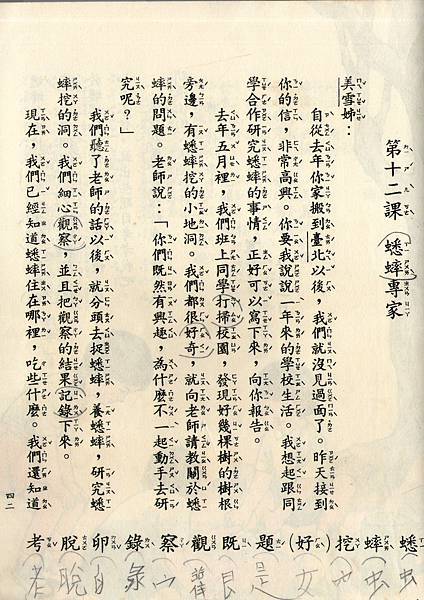 第十二課　蟋蟀專家
美雪姊：
自從去年你家搬到臺北以後，我們就沒見過面了。昨天接到
你的信，非常高興。你要我說說一年來的學校生活。我想起跟同
學合作研究蟋蟀的事情，正好可以寫下來，向你報告。
去年五月裡，我們班上同學打掃校園，發現好幾棵樹的樹根
旁邊，有蟋蟀挖的小地洞。我們都很好奇，就向老師請教關於蟋
蟀的問題。老師說：「你們既然有興趣，為什麼不一起動手去研
究呢？」
我們聽了老師的話以後，就分頭去捉蟋蟀，養蟋蟀，研究蟋
蟀挖的洞。我們細心觀察，並且把觀察的結果記錄下來。
現在，我們已經知道蟋蟀住在哪裡，吃些什麼。我們還知道
四二
蟋蟀挖(好)題既觀察錄卵脫考
虫虫女是艮